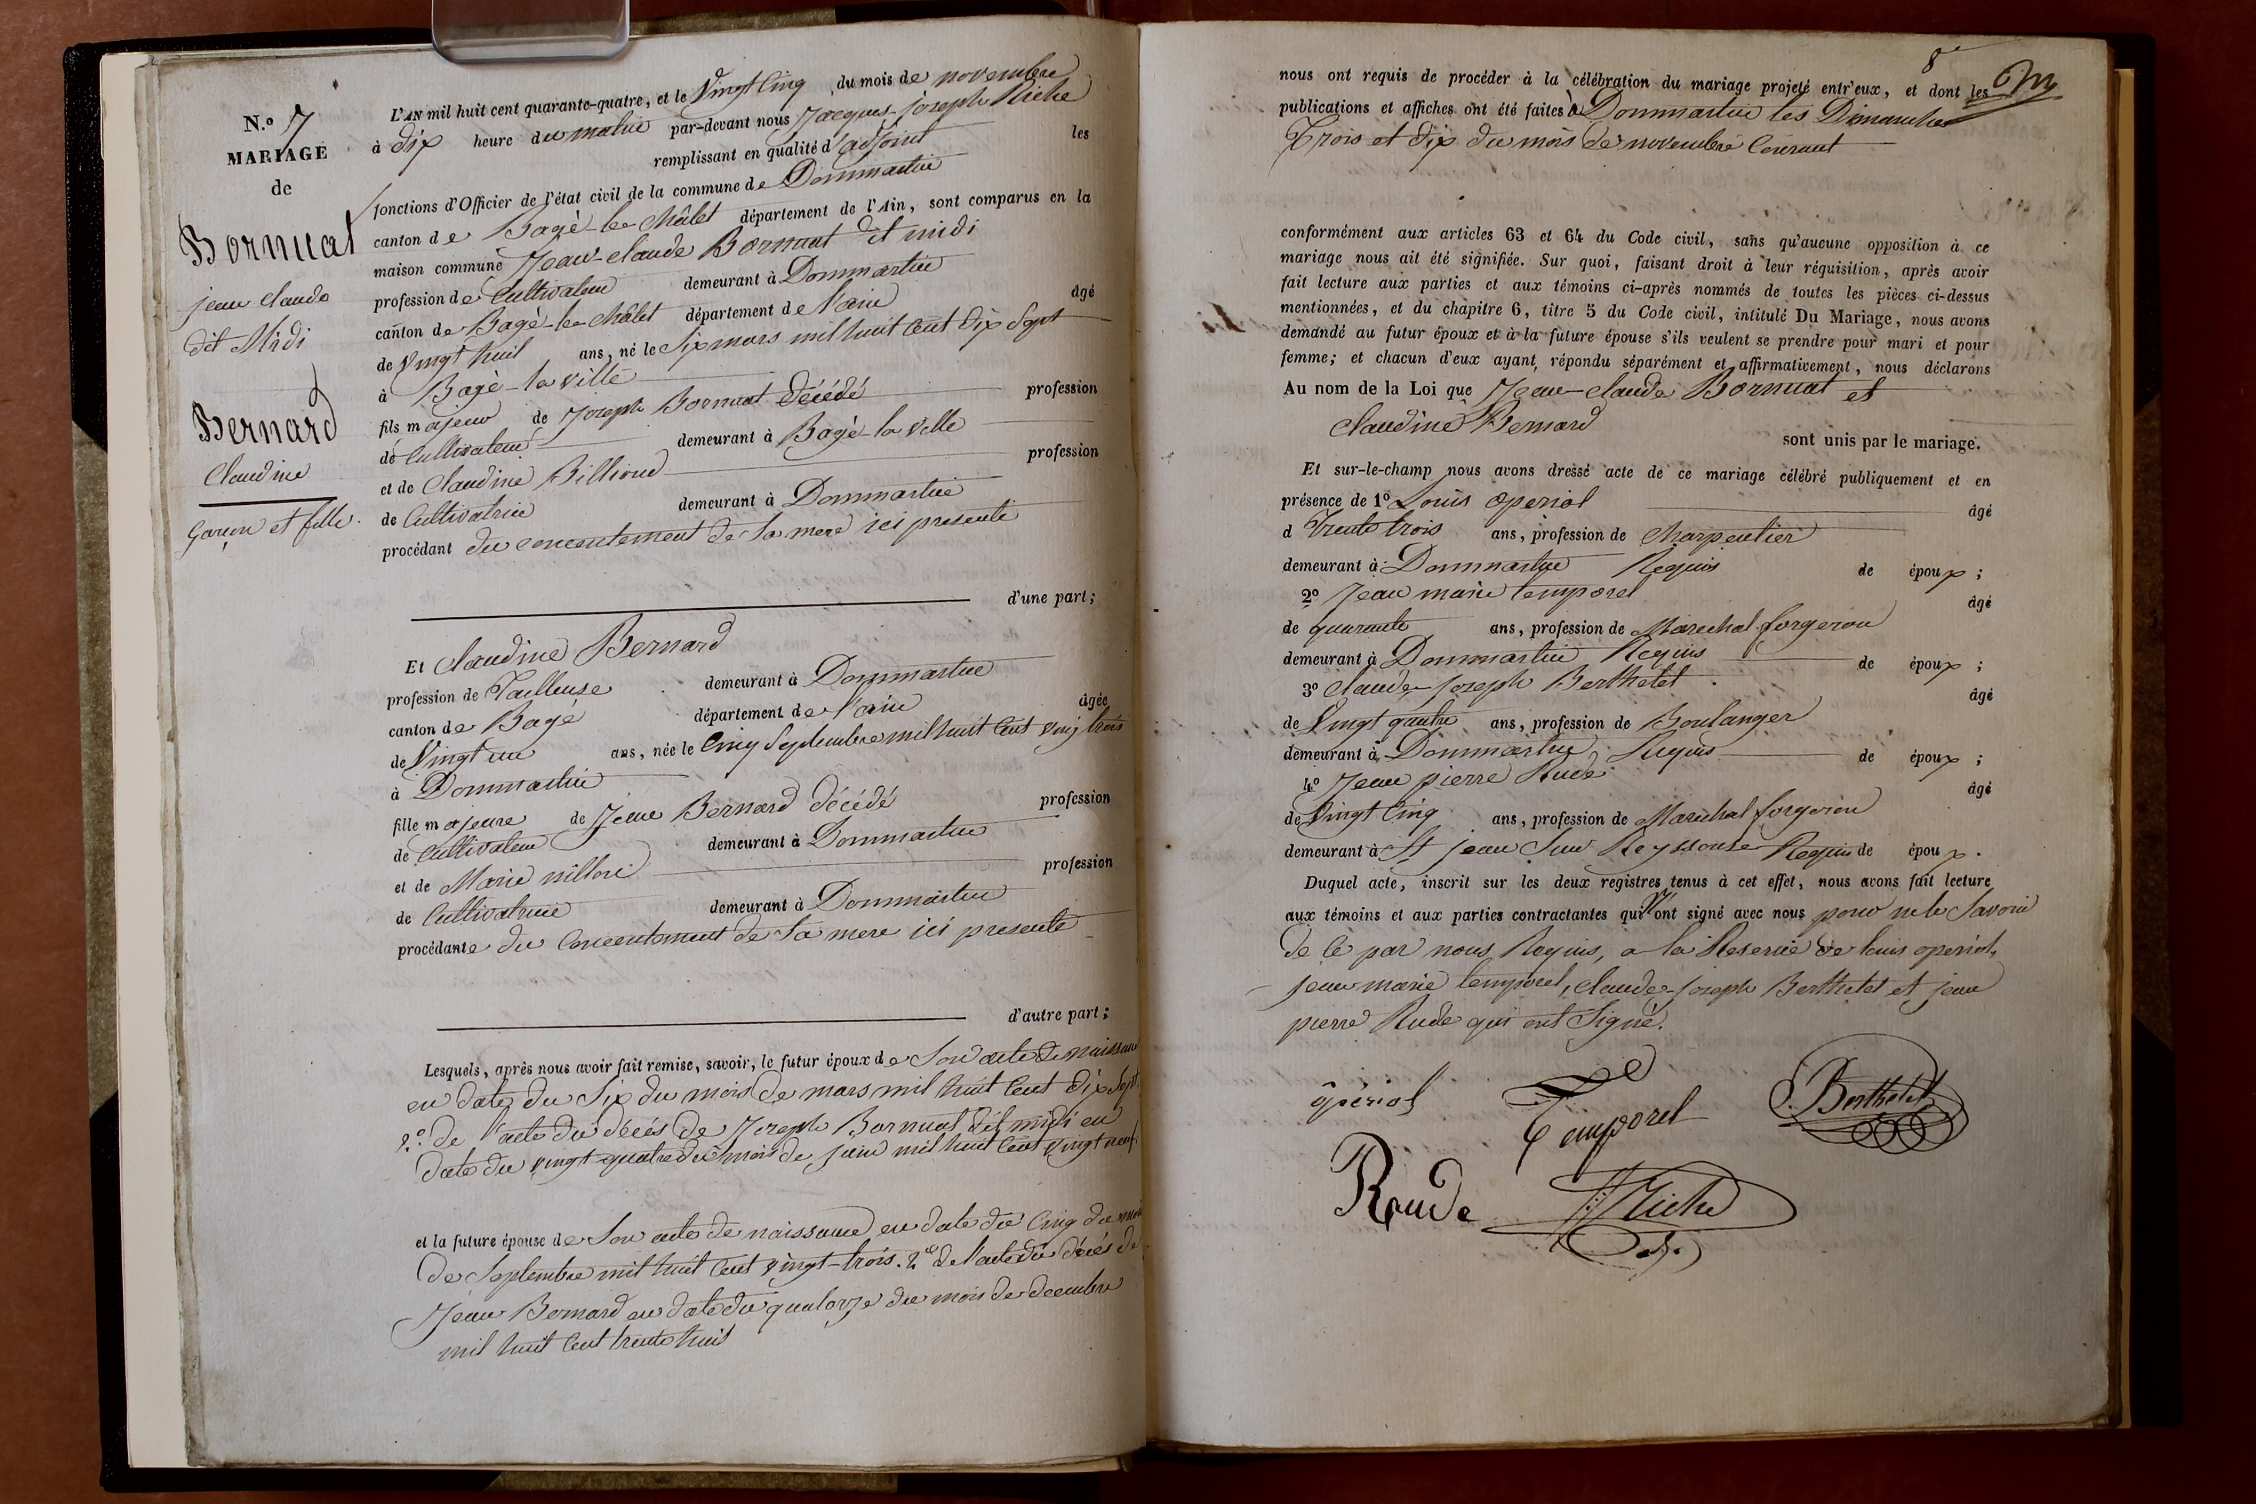 N.o 7
MARIAGE
de
Bornuat
jean claude
dit Midi
Bernard
Claudine
Garçon et fille.
L'AN mil huit cent quarante-quatre, et le Vingt Cinq du mois de novembre
à dix heure du matin par-devant nous Jacques-joseph Riche
remplissant en qualité d'adjoint les
fonctions d'Officier de l'état civil de la commune de Dommartin
canton de Bagé-le-Châlet département de l'Ain, sont comparus en la
maison commune Jean-claude Bornuat dit midi
profession de Cultivateur demeurant à Dommartin
canton de Bagé-le-Châlet département de l'ain âgé
de Vingt huit ans, né le Six mars mil huit Cent dix Sept
à Bagé-la ville
fils majeur de Joseph Bornuat décédé profession
de Cultivateur demeurant à Bagé-la ville
et de Claudine Billioud profession
de Cultivatrice demeurant à Dommartin
procédant du concentement de Sa mere ici presente
d'une part;
Et Claudine Bernard
profession de Tailleuse demeurant à Dommartin
canton de Bagé département de l'ain âgée
de Vingt un ans, née le Cinq Septembre mil huit Cent ving trois
à Dommartin
fille majeure de Jean Bernard décédé profession
de Cultivateur demeurant à Dommartin
et de Marie profession
de Cultivatrice demeurant à Dommartin
procédante du Concentement de Sa mere ici presente
d'autre part;
Lesquels, après nous avoir fait remise, savoir, le futur époux de Son acte de naissance
en date du Six du mois de mars mil huit Cent dix Sept.
2.o de l'acte du décés de Joseph Bornuat dit midi en
date du vingt quatre du mois de juin mil huit Cent vingt neuf.
et la future épouse de Son acte de naissance en date du Cinq du mois
de Septembre mil huit Cent vingt-trois. 2o de l'acte du décés de
Jean Bernard en date du quatorze du mois de decembre
mil huit Cent trente huit
8
nous ont requis de procéder à la célébration du mariage projeté entr'eux, et dont les
publications et affiches ont été faites à Dommartin les Dimanches
Trois et dix du mois de novembre Courant
conformément aux articles 63 et 64 du Code civil, sans qu'aucune opposition à ce
mariage nous ait été signifiée. Sur quoi, faisant droit à leur réquisition, après avoir
fait lecture aux parties et aux témoins ci-après nommés de toutes les pièces ci-dessus
mentionnées, et du chapitre 6, titre 5 du Code civil, intitulé Du Mariage, nous avons
demandé au futur époux et à la future épouse s'ils veulent se prendre pour mari et pour
femme; et chacun d'eux ayant répondu séparément et affirmativement, nous déclarons
Au nom de la Loi que Jean-claude Bornuat et
Claudine Bernard
sont unis par le mariage.
Et sur-le-champ nous avons dressé acte de ce mariage célébré publiquement et en
présence de 1o Louis operiol âgé
d Trente trois ans, profession de Charpentier
demeurant à Dommartin Requis de époux;
2o Jean marie temporel âgé
de quarante ans, profession de Marechal forgeron
demeurant à Dommartin Requis de époux;
3o Claude-joseph Berthelet âgé
de Vingt quatre ans, profession de Boulanger
demeurant à Dommartin Requis de époux;
4o Jean pierre Rude âgé
de Vingt Cinq ans, profession de Marechal forgeron
demeurant à St jean Sur Reyssouse Requis de époux.
Duquel acte, inscrit sur les deux registres tenus à cet effet, nous avons fait lecture
aux témoins et aux parties contractantes qui n'ont signé avec nous pour ne le Savoir
de Ce par nous Requis, a la Reserve de louis operiol,
jean marie temporel, claude-joseph Berthelet et jean
pierre Rude qui ont Signé.
operiol
Temporel
Berthelet
Rude
Riche
adj.